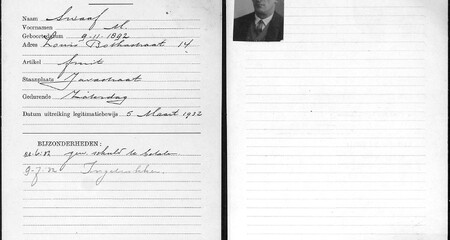 Naam Swaaf
Voornamen M
Geboortedatum 9-11-1892
Adres Louis Bothastraat 14
Artikel fruit
Staanplaats Javastraat
Gedurende Zaterdag
Datum uitreiking legitimatiebewijs 5 Maart 1932
BIJZONDERHEDEN:
gen. schuld te betalen
9-7-32 Ingetrokken.